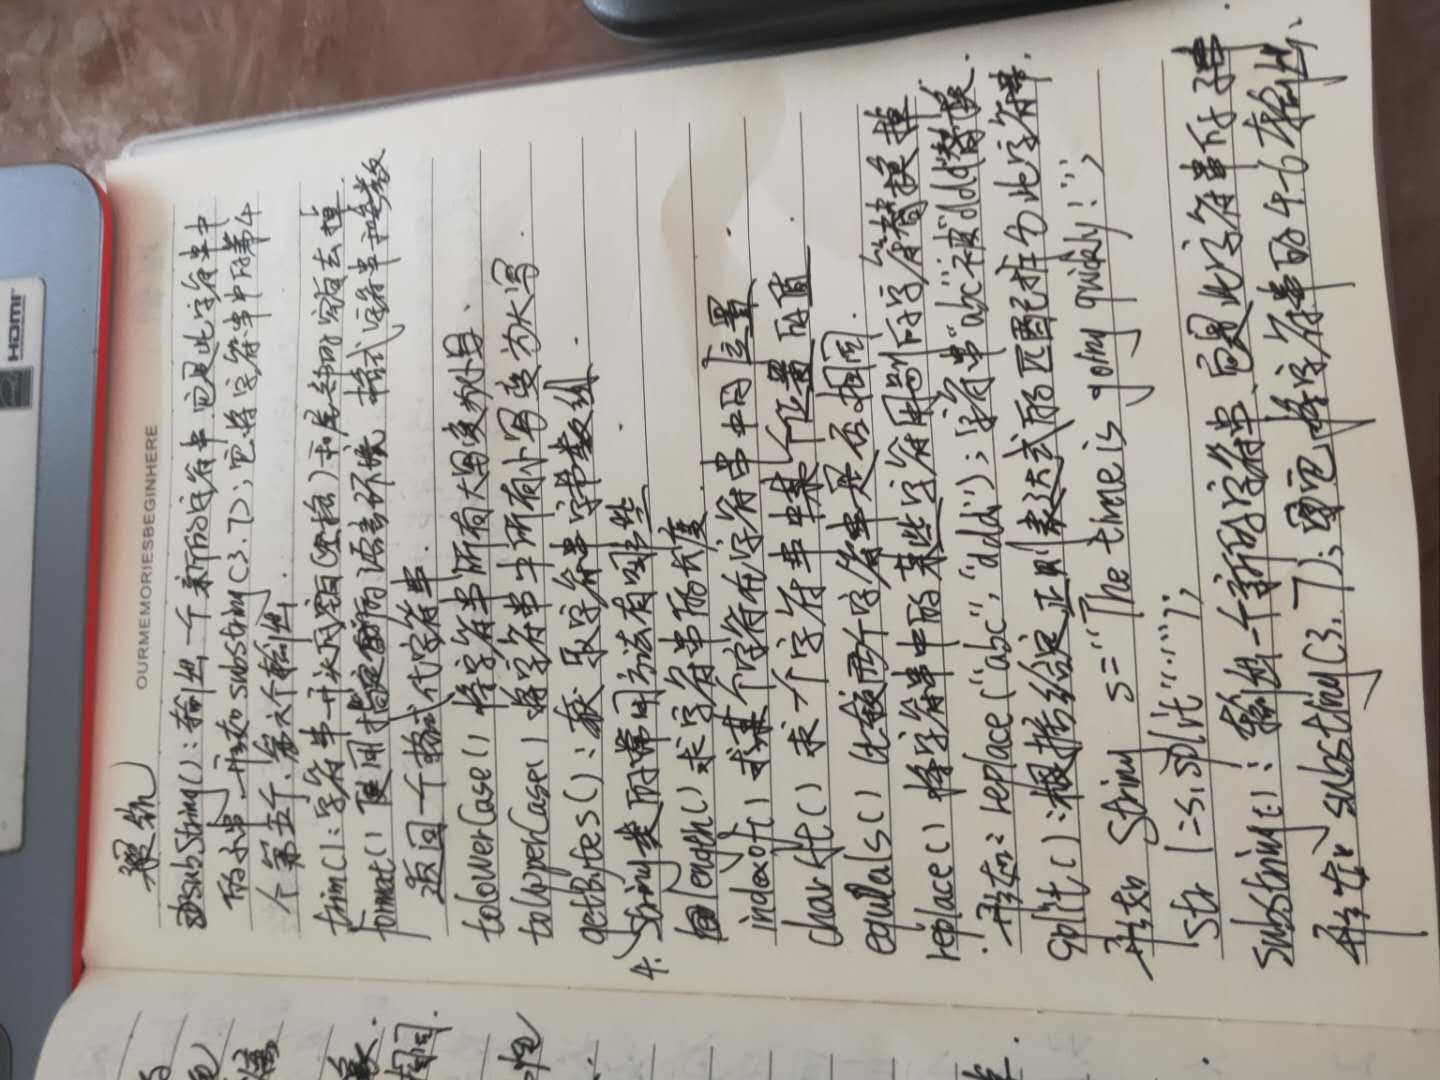 OURMEMORIESBEGINHERE
substring():输出一个新的字符串,它是此字符串中
的子串,形如substring(3.7);它将字符串中的第4
个第五个,第六个输出.
trim():字符串开头的空白(空格)和尾部的空白去掉.
format()使用指定的语言环境,格式字符串和参数
返回一个格式化字符串.
toLowerCase()将字符串所有大写变为小写.
toUpperCase()将字符串中所有小写变为大写.
getBytes():获取字符串字节数组.
4.String类的常用方法有哪些.
length()求字符串的长度.
indexof()求某个字符在字符串中的位置.
charAt()求一个字符串中某个位置的值.
equals()比较两个字符串是否相同.
replace()将字符串中的某些字符用别的字符替换掉.
形如:replace("abc","ddd");字符串"abc"被"ddd"替换.
split():根据给定正则表达式的匹配拆分此字符串.
形如 String s="The time is going quickly!";
str 1=s.split("");
substring():输出一个新的字符串,它是此字符串的子串
形如:substring(3.7);它将字符串的4-6输出.
HDMI